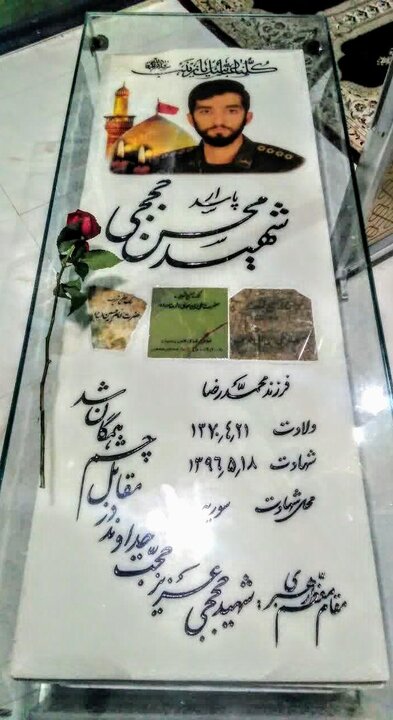 کلنا عباسک یا زینب
پاسدار
شهید محسن حججی
فرزند محمدرضا
ولادت ۱۳۷۰٫۴٫۲۱
شهادت ۱۳۹۶٫۵٫۱۸
محل شهادت سوریه
مقام معظم رهبری: شهید حججی عزیز حجت خداوند در مقابل چشم همگان شد